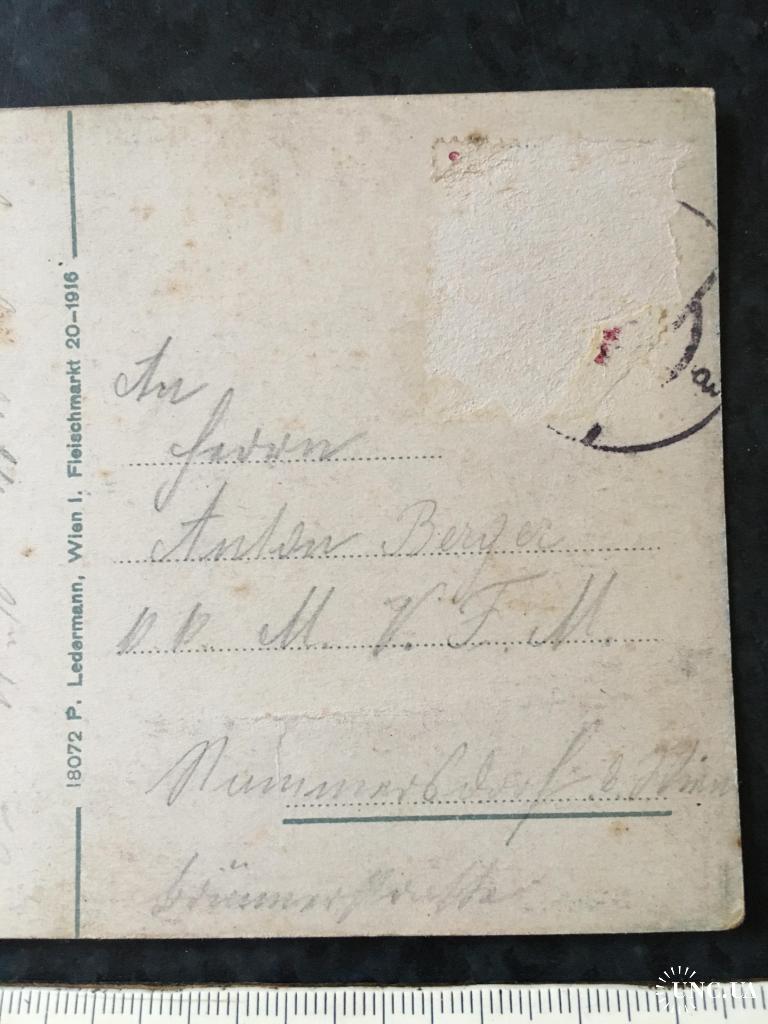 18072 P. Ledermann, Wien I, Fleischmarkt 20-1916
An
Herrn
Anton Berger
k. k. M. V. F. M.
Stammersdorf b. Wien
Brünnerstraße
UNC.UA